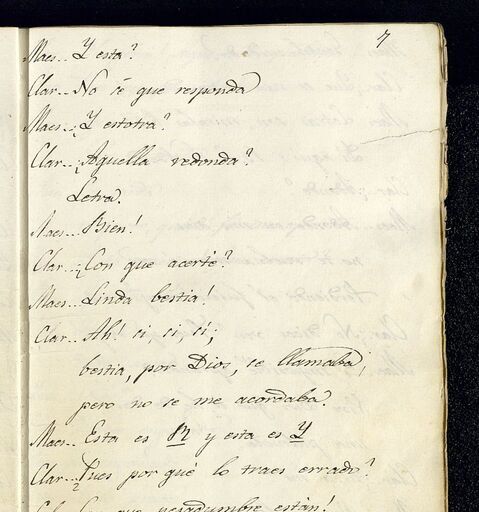 7
Maes... Y esta?
Clar... No sé que responda
Maes...¿Y estotra?
Clar...¿Aquella redonda?
Letra.
Maes... Bien!
Clar...¿Con que acerté?
Maes... Linda bestia!
Clar... Ah! si, si, si;
bestia, por Dios, se llamaba,
pero no se me acordaba.
Maes... Esta es R y esta es Y
Clar...¿Pues por qué lo traes errado?
Clar... que pesadumbre están!